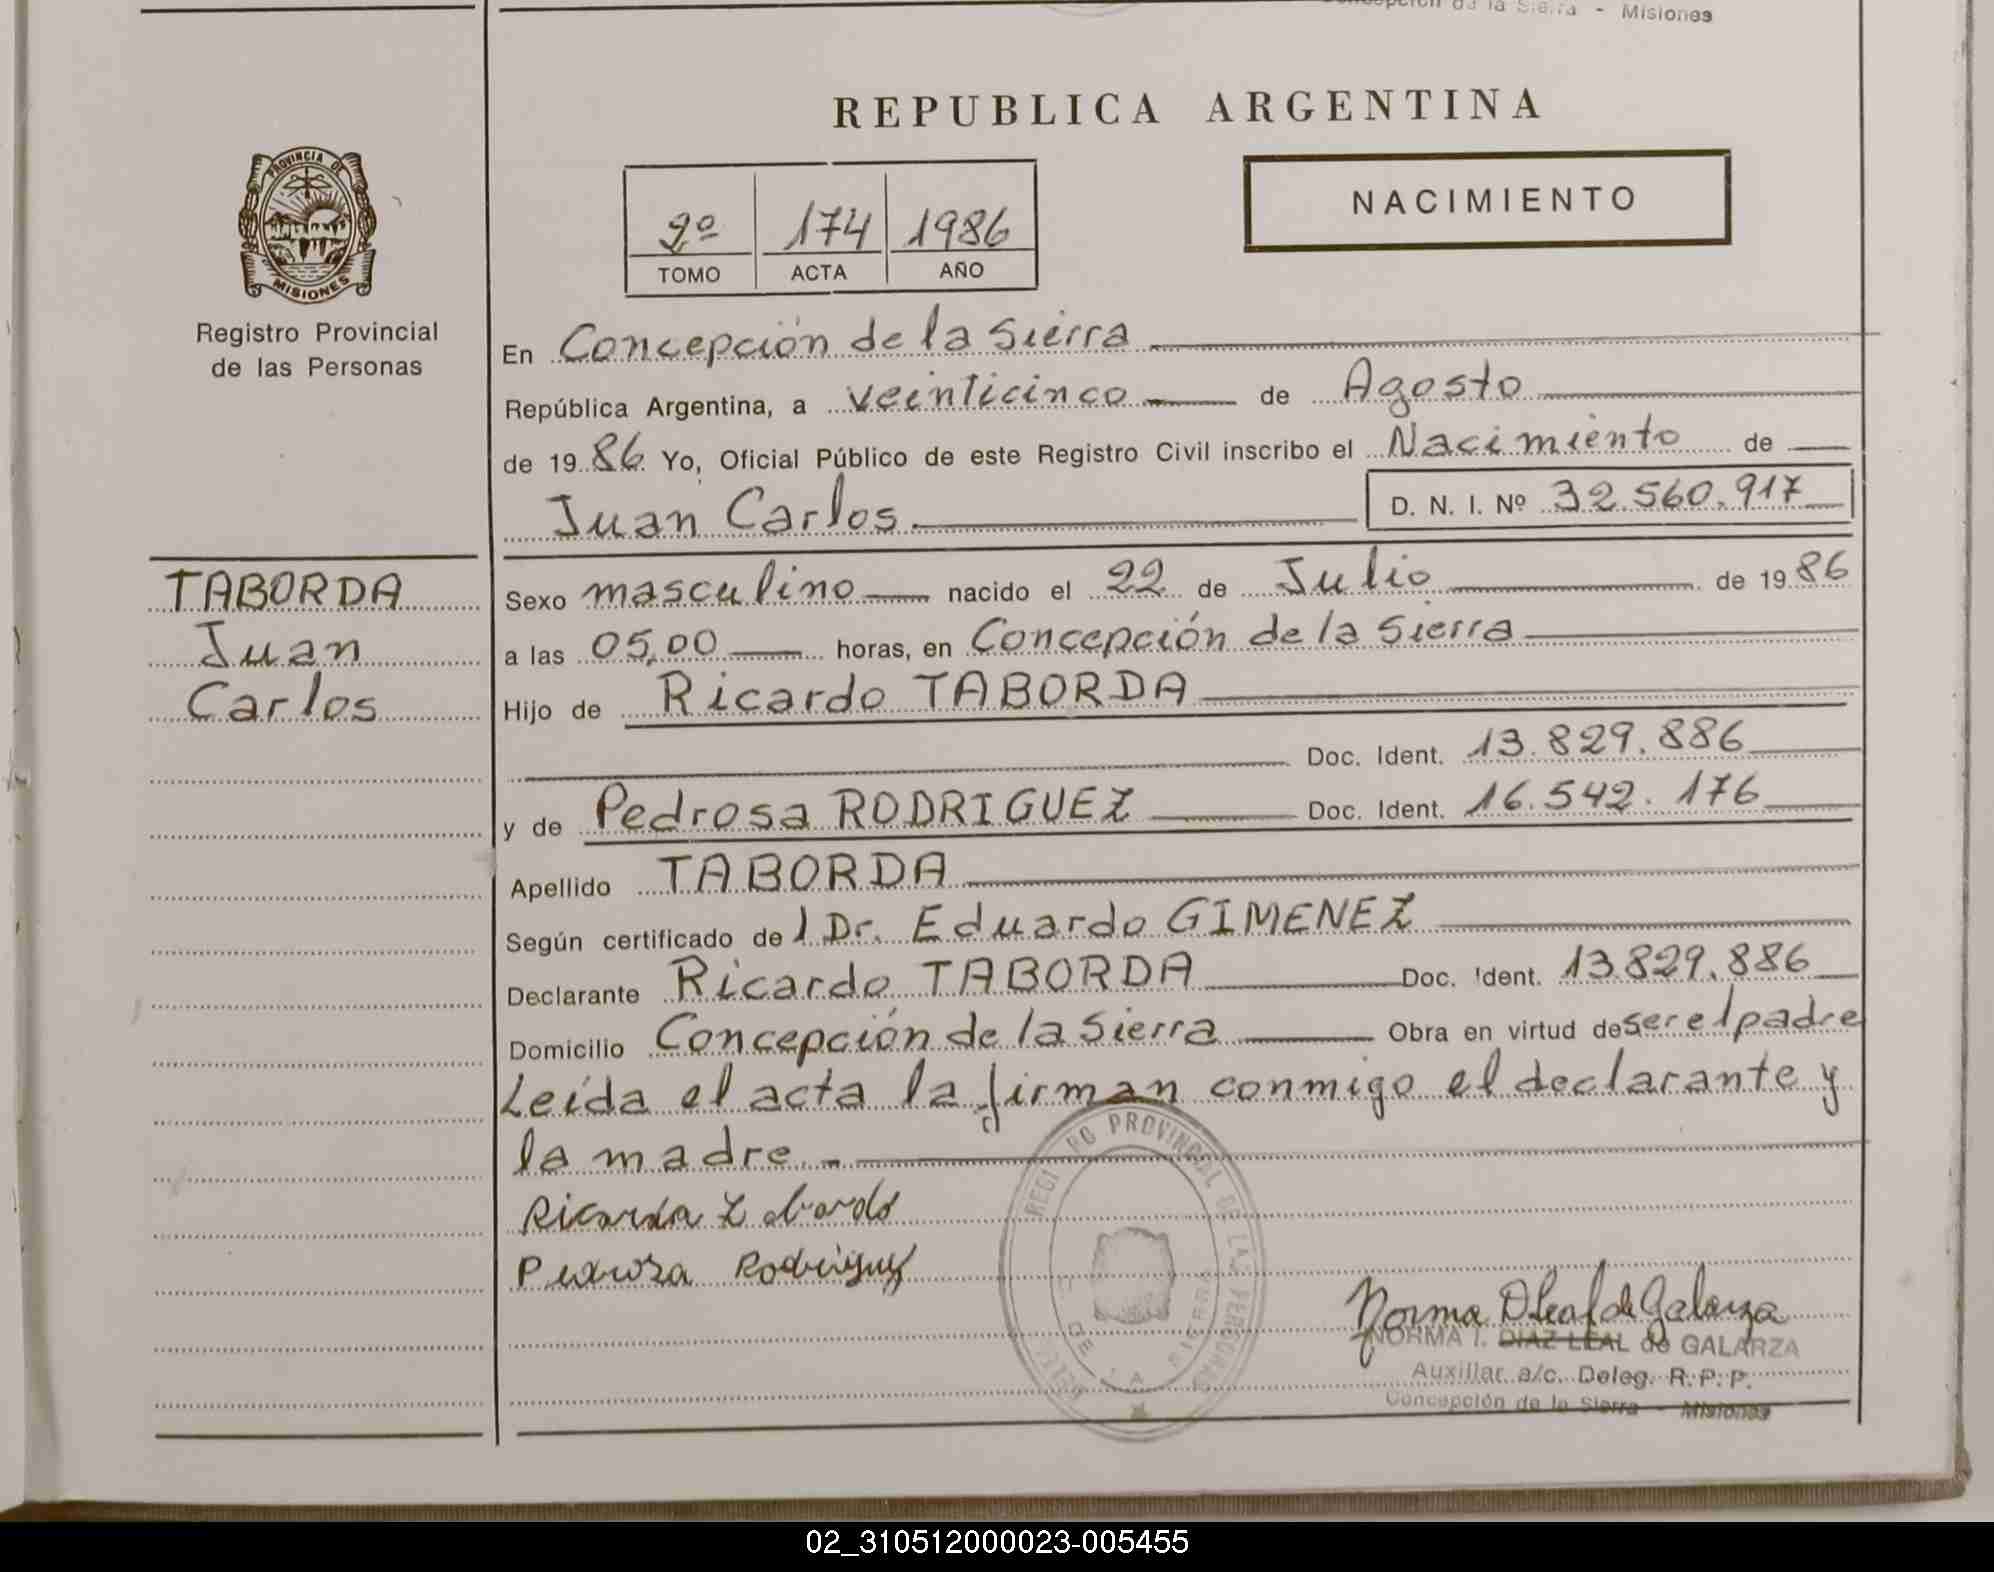 Concepción de la Sierra - Misiones
REPUBLICA ARGENTINA
PROVINCIA DE
MISIONES
Registro Provincial
de las Personas
2º 174 1986
TOMO ACTA AÑO
NACIMIENTO
En Concepción de la Sierra
República Argentina, a veinticinco de Agosto
de 1986 Yo, Oficial Público de este Registro Civil inscribo el Nacimiento de
Juan Carlos D. N. I. Nº 32.560.917
TABORDA
Juan
Carlos
Sexo masculino nacido el 22 de Julio de 1986
a las 05,00 horas, en Concepción de la Sierra
Hijo de Ricardo TABORDA
Doc. Ident. 13.829.886
y de Pedrosa RODRIGUEZ Doc. Ident. 16.542.176
Apellido TABORDA
Según certificado del Dr. Eduardo GIMENEZ
Declarante Ricardo TABORDA Doc. Ident. 13.829.886
Domicilio Concepción de la Sierra Obra en virtud de ser el padre
Leída el acta la firman conmigo el declarante y
la madre.-
REGI RO PROVINCIAL DE LAS PERSONAS
DE LA SIERRA
Pedroza Rodriguez
Norma D Leal de Galarza
NORMA I. DIAZ LEAL de GALARZA
Auxiliar a/c. Deleg. R. P. P.
Concepción de la Sierra - Misiones
02_310512000023-005455